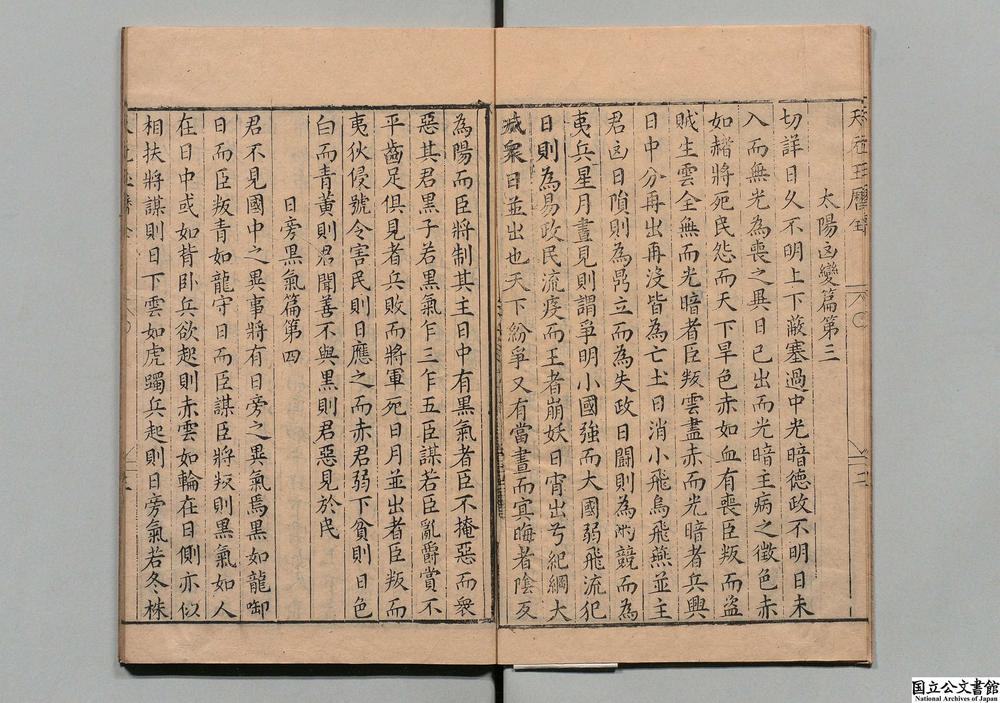 太陽凶變篇第三
切詳日久不明上下蔽塞過中光暗德政不明日未
入而無光為喪之異日已出而光暗主病之徵色赤
如赭將死民怨而天下旱色赤如血有喪臣叛而盜
賊生雲全無而光暗者臣叛雲盡赤而光暗者兵興
日中分再出再沒皆為亡土日消小飛烏飛燕並主
君凶日隕則為鼎立而為失政日鬭則為兩競而為
夷兵星月晝見則謂爭明小國強而大國弱飛流犯
日則為易政民流疫而王者崩妖日宵出兮紀綱大
滅衆日並出也天下紛爭又有當晝而冥晦者陰反
為陽而臣將制其主日中有黑氣者臣不掩惡而衆
惡其君黑子若黑氣乍三乍五臣謀若臣亂爵賞不
平齒足俱見者兵敗而將軍死日月並出者臣叛而
夷狄侵號令害民則日應之而赤君弱下貧則日色
白而青黃則君聞善不與黑則君惡見於民
日旁黑氣篇第四
君不見國中之異事將有日旁之異氣焉黑如龍啣
日而臣叛青如龍守日而臣謀臣將叛則黑氣如人
在日中或如背臥兵欲起則赤雲如輪在日側亦似
相扶將謀則日下雲如虎躅兵起則日旁氣若冬株
国立公文書館
National Archives of Japan